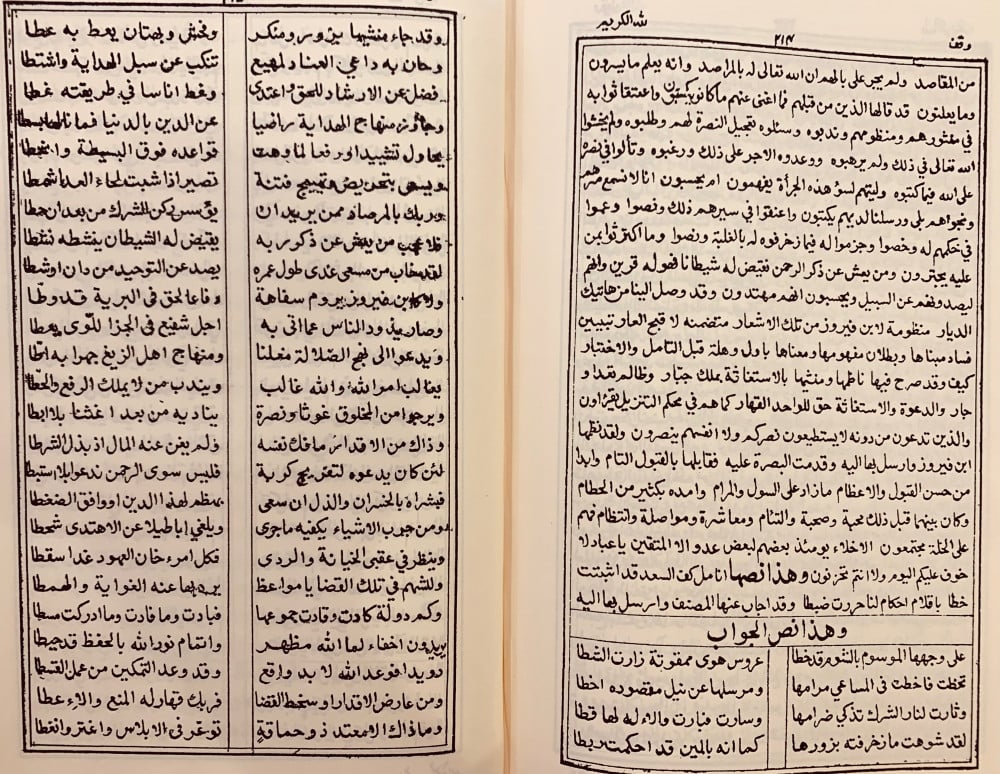 لله الكريم
وقف
٢١٤
من المقاصد ولم يجر على بالهم ان الله تعالى له بالمراصد وانه يعلم ما يسرون
وما يعلنون قد قالها الذين من قبلهم فما اغنى عنهم ما كانوا يكسبون واعتقا ثوابه
في منثورهم ومنظومهم وندبوه وسئلوه تعجيل النصرة لهم وطلبوه ولم يخشوا
الله تعالى في ذلك ولم يرهبوه ووعدوه الاجر على ذلك ورغبوه وتألوا في نصره
على الله فيما كتبوه وليتهم لسؤ هذه الجرأة يفهمون ام يحسبون انا لا نسمع سرهم
ونجواهم بلى ورسلنا لديهم يكتبون واعنقوا في سيرهم ذلك ونصوا وعموا
في حكمهم له وخصوا وجزموا له فيما زخرفوه له بالغلبة ونصوا وما اكترثوا بمن
عليه يجترون ومن يعش عن ذكر الرحمن نقيض له شيطانا فهو له قرين وانهم
ليصدونهم عن السبيل ويحسبون انهم مهتدون وقد وصل الينا من هاتيك
الديار منظومة لابن فيروز من تلك الاشعار متضمنة لا قبح العار تبيين
فساد مبناها وبطلان مفهومها ومعناها باول وهلة قبل التأمل والاختبار
كيف وقد صرح فيها ناظمها ومنشيها بالاستغاثة بملك جبار وظالم تعدا و
جار والدعوة والاستغاثة حق للواحد القهار كما هم في محكم التنزيل يقرؤن
والذين تدعون من دونه لا يستطيعون نصركم ولا انفسهم ينصرون ولقد نظمها
ابن فيروز وارسل بها اليه وقدمت البصرة عليه فقابلها بالقبول التام وابدا
من حسن القبول والاعظام ما زاد على السول والمرام وامده بكثير من الحطام
وكان بينهما قبل ذلك محبة وصحبة والتئام ومعاشرة ومواصلة وانتظام فهم
على الخلة مجتمعون الاخلاء يومئذ بعضهم لبعض عدو الا المتقين يا عباد لا
خوف عليكم اليوم ولا انتم تحزنون وهذا نصها انامل كف السعد قد اثبتت
خطا باقلام احكام لنا حررت ضبطا وقد اجاب عنها المصنف وارسل بها اليه
وهذا نص الجواب
على وجهها الموسوم بالشؤم قد خطا عروس هوى ممقوتة زارت الشطا
تخطت فاخطت في المساعي مرامها ومرسلها عن نيل مقصوده اخطا
وثارت لنار الشرك تذكي ضرامها وسارت فبارت والاله لها قطا
لقد شوهت ما زخرفته بزورها كما انه بالمين قد احكمت ربطا
وقد جاء منشيها بزور ومنكر وفحش وبهتان يعط به عطا
وحان به داعي العناد لمهيع تنكب عن سبل الهداية واشتطا
فضل عن الارشاد للحق واعتدى وغط اناسا في طريقته غطا
وجاوز منهاج الهداية راضيا عن الدين بالدنيا فما نالها
يحاول تشييدا ورفعا لما وهت قواعده فوق البسيطة وانحطا
ويسعى بتحريض وتهييج فتنة تصير اذا شبت لحاء العدا شمطا
وربك بالمرصاد ممن يريد ان يؤسس ركن الشرك من بعد ان حطا
فلا عجب من يعش عن ذكر ربه يقيض له الشيطان ينشطه نشطا
لقد خاب من مسعى غدى طول عمره يصد عن التوحيد من دان او شطا
ولا كابن فيروز يروم سفاهة دفاعا لحق في البرية قد وطا
وصار يذود الناس عما اتى به اجل شفيع في الجزا للوى يعطا
ويدعوا الى نهج الضلالة معلنا ومنهاج اهل الزيغ جهرا به
يغالب امر الله والله غالب ويندب من لا يملك الرفع والحطا
ويرجوا من المخلوق غوثا ونصرة يناديه من بعد اغثنا بلا ابطا
وذاك من الاقدار ما فك نفسه ولم يغن عنه المال اذ بذل الشرطا
لئن كان يدعوه لتفريج كربة فليس سوى الرحمن ندعو بلا استبطا
فبشراه بالخسران والذل ان سعى بهظم لهذا الدين او وافق الضغطا
ومن جوب الاشياء يكفيه ما جرى ويلغي اباطيلا عن الاهتدى شحطا
وينظر في عقبى الخيانة والردى فكل امرء خان العهود غدا سقطا
ولله هم في تلك القضايا مواعظ يرد بها عنه الغواية والهمطا
وكم دولة كادت وقادت جموعها فبادت وما فادت وما ادركت سطا
يريدون اخفاء لما الله مظهر واتمام نور الله بالحفظ قد حيطا
رويدا فوعد الله لا بد واقع وقد وعد التمكين من عمل القسطا
ومن عارض الاقدار او سخط القضا فربك قهار له المنع والاعطا
وما ذاك الا معتد ذو حماقة توعر في الابلاس واغتر وانغطا